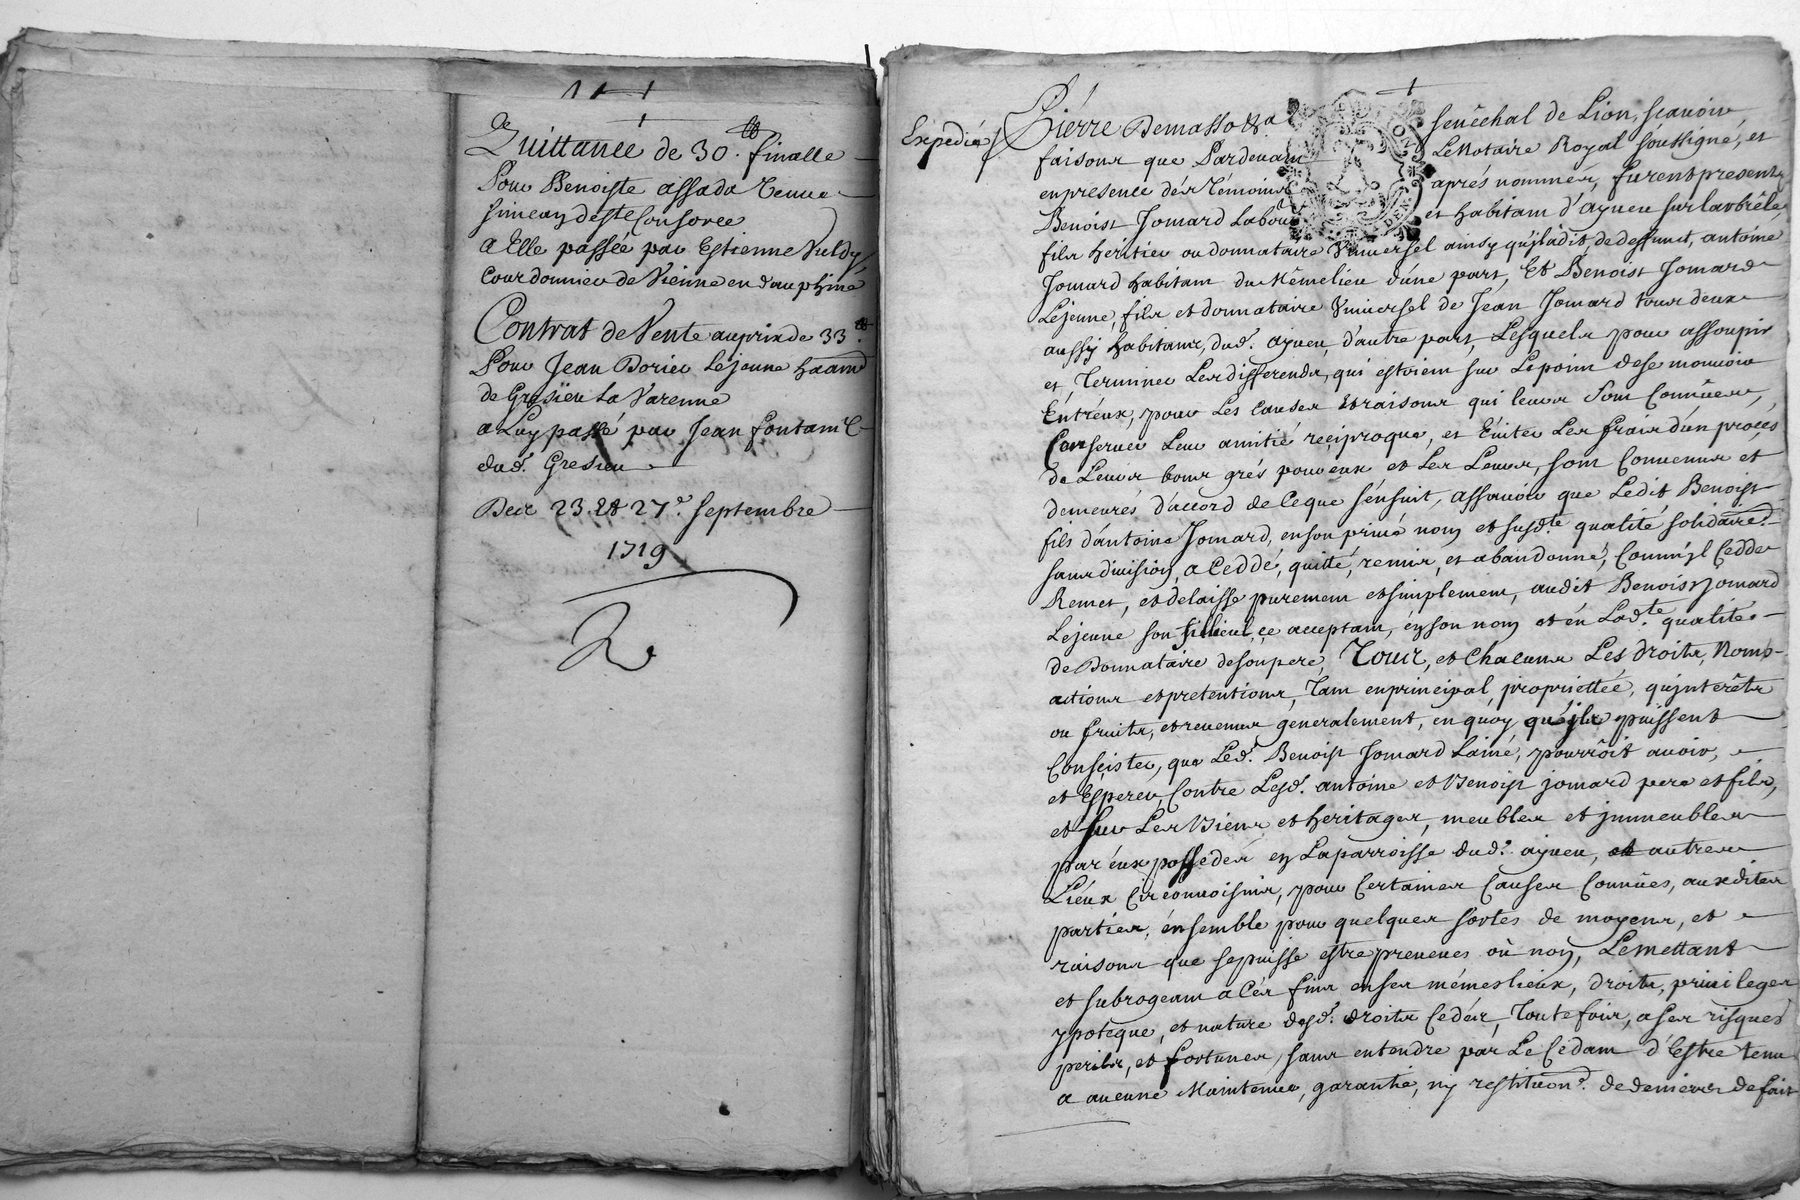 Quittance de 30.lt finalle
Pour Benoiste assada veuve
simeon deste Consorce
a Elle passée par Estienne
Courdonnier de Vienne en dauphiné
Contrat de Vente au prix de 33.lt
Pour Jean Dorier Lejeune
de Gresieu La Varenne
a Luy passé par Jean fontan
dud. Gresieu
Des 23. et 27.e septembre
1719
Expedié
Pierre Demasso &a senéchal de Lion, scavoir
faisons que Pardevant Le Notaire Royal soussigné, et
en presence dés témoins aprés nommés, furent presents
Benoist Jomard Labour et habitant d'ayueu sur larbrêle,
fils heritier ou donnataire Universel ainsy qu'il a dit, de deffunct, antoine
Jomard habitant du Mêmelieu d'une part, Et Benoist Jomard
Lejeune, fils et donnataire Universel de Jean Jomard tous deux
aussy habitans, dud. ayueu, d'autre part, Lesquels pour assoupir
et Terminer Les differends, qui estoient sur Lepoint dese mouvoir
Entréux, pour Les Causes et raisons qui leurs sont Connües,
Conserver Leur amitié réciproque, et Eviter Les frais d'un procés
de Leurs bons grés pour eux et Les Leurs, sont Convenus et
demeurés d'accord de Ceque s'ensuit, assavoir que Ledit Benoist
fils d'antoine Jomard, enson privé nom et susd.te qualité solidaire.t
sans division, a Ceddé, quitté, remis, et abandonné, Comm'jl Cedde
Remet, et delaisse purement et simplement, audit Benoist Jomard
Lejeune son filieul, ce acceptant, en son nom et én Lad.te qualité
de Donnataire desonpere, Tous, et Chacuns Les droits, Noms
actions et pretentions, Tant en principal, propriettée, qu'jnterêts
ou fruits, et revenus generalement, en quoy qu'jls puissent
Consister, que Led. Benoist Jomard Lainé, pourroit avoir,
et Esperer, Contre Lesd. antoine et Benoist jomard pere et fils,
et sur Les Biens et heritages, meubles et jmmeubles
par éux possedés en Laparroisse dud. ayueu, et autres
Liéux Circonvoisins, pour Certaines Causes Connües, auxdites
parties, énsemble pour quelques sortes de moyens, et
raisons que sepuisse estre prevenes où non, Lemettant
et subrogeant a Cés fins enses mémes lieux, droits, privileges
ypoteque, et nature desd. droits Cédés, Toutefois, a ses risques
perils, et fortunes, sans entendre par Le Cédant d'Estre tenu
a aucune Maintenue, garantie, ny restituon. de deniers de fait